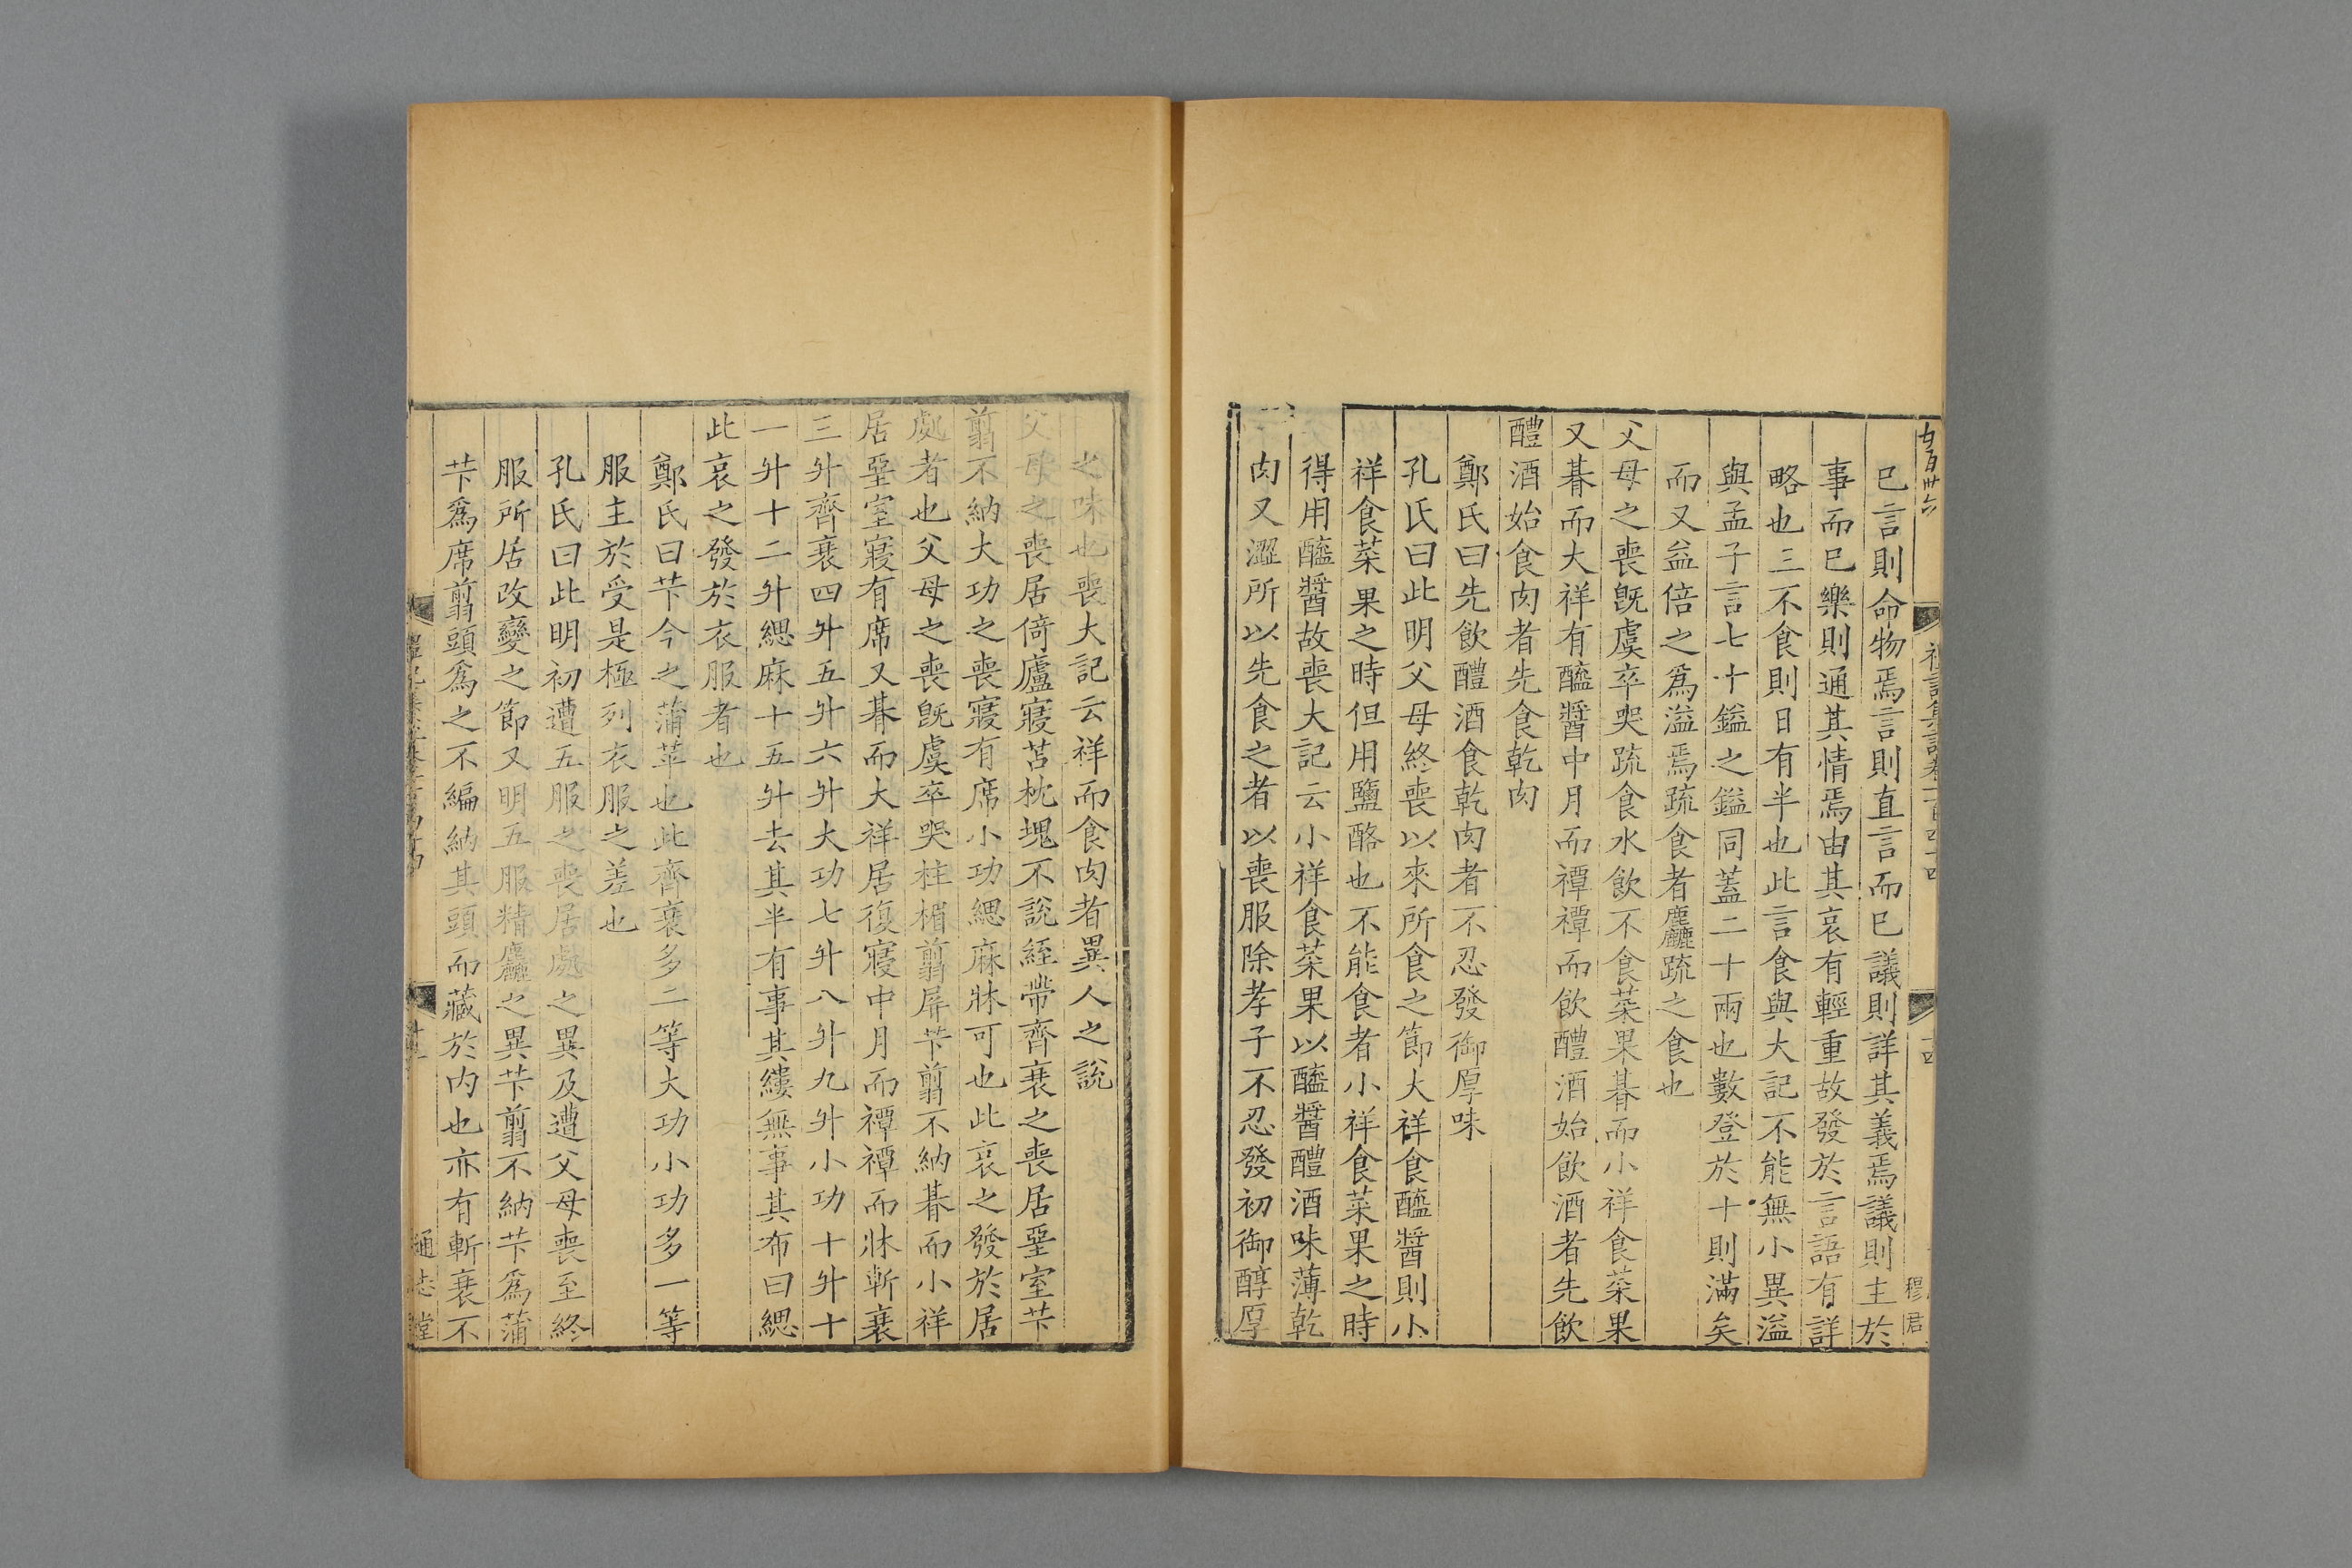 禮記集說卷一百四十四
十四
穆君
已言則命物焉言則直言而已議則詳其義焉議則主於
事而已樂則通其情焉由其哀有輕重故發於言語有詳
略也三不食則日有半也此言食與大記不能無小異溢
與孟子言七十鎰之鎰同蓋二十兩也數登於十則滿矣
而又益倍之爲溢焉疏食者麤疏之食也
父母之喪旣虞卒哭疏食水飲不食菜果朞而小祥食菜果
又朞而大祥有醯醬中月而禫禫而飲醴酒始飲酒者先飲
醴酒始食肉者先食乾肉
鄭氏曰先飲醴酒食乾肉者不忍發御厚味
孔氏曰此明父母終喪以來所食之節大祥食醯醬則小
祥食菜果之時但用鹽酪也不能食者小祥食菜果之時
得用醯醬故喪大記云小祥食菜果以醯醬醴酒味薄乾
肉又澀所以先食之者以喪服除孝子不忍發初御醇厚
之味也喪大記云祥而食肉者異人之說
父母之喪居倚廬寢苫枕塊不說絰帶齊衰之喪居堊室芐
翦不納大功之喪寢有席小功緦麻牀可也此哀之發於居
處者也父母之喪旣虞卒哭柱楣翦屏芐翦不納朞而小祥
居堊室寢有席又朞而大祥居復寢中月而禫禫而牀斬衰
三升齊衰四升五升六升大功七升八升九升小功十升十
一升十二升緦麻十五升去其半有事其縷無事其布曰緦
此哀之發於衣服者也
鄭氏曰芐今之蒲苹也此齊衰多二等大功小功多一等
服主於受是極列衣服之差也
孔氏曰此明初遭五服之喪居處之異及遭父母喪至終
服所居改變之節又明五服精麤之異芐翦不納芐爲蒲
芐爲席翦頭爲之不編納其頭而藏於內也亦有斬衰不
通志堂